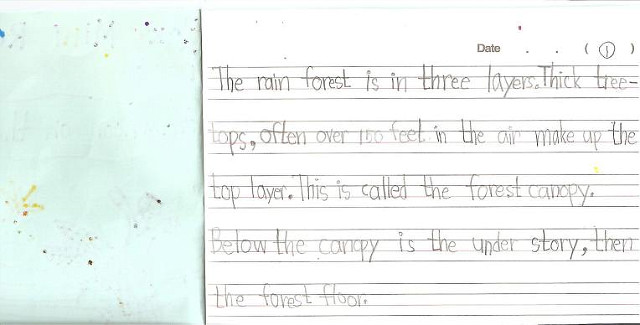 Date . . ( 1 )
The rain forest is in three layers. Thick tree-
tops, often over 150 feet in the air make up the
top layer. This is called the forest canopy.
Below the canopy is the under story, then
the forest floor.